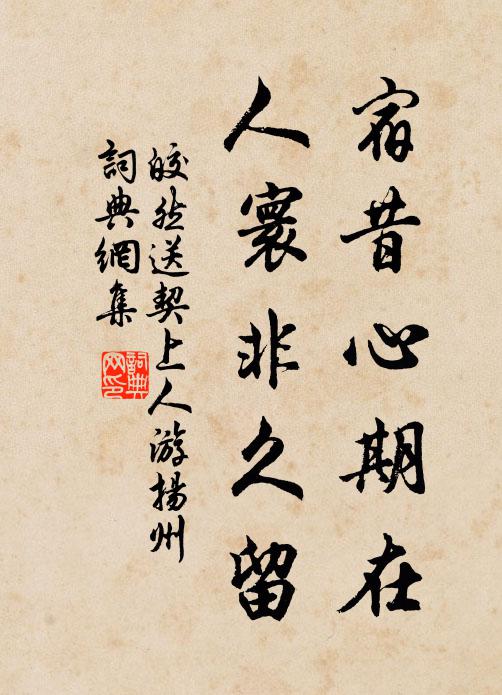 宿昔心期在
人寰非久留
皎然送契上人游揚州
詞典網集
詞典
网印